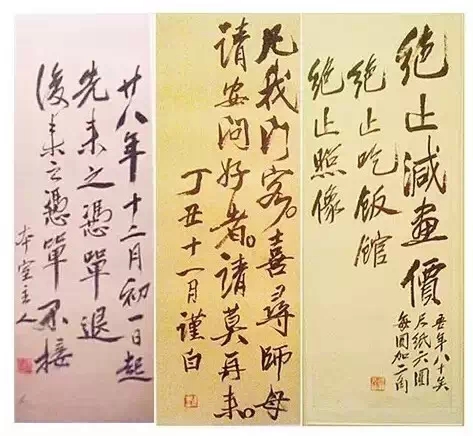 廿八年十二月初一日起
先来之憑單退
後来之憑單不接
本室主人
凡我門客。喜尋師母
請安問好者。請莫再来。
丁丑十一月謹白
絕止減畫價
絕止吃飯館
絕止照像
吾年八十矣
尺紙六圓
每圓加二角